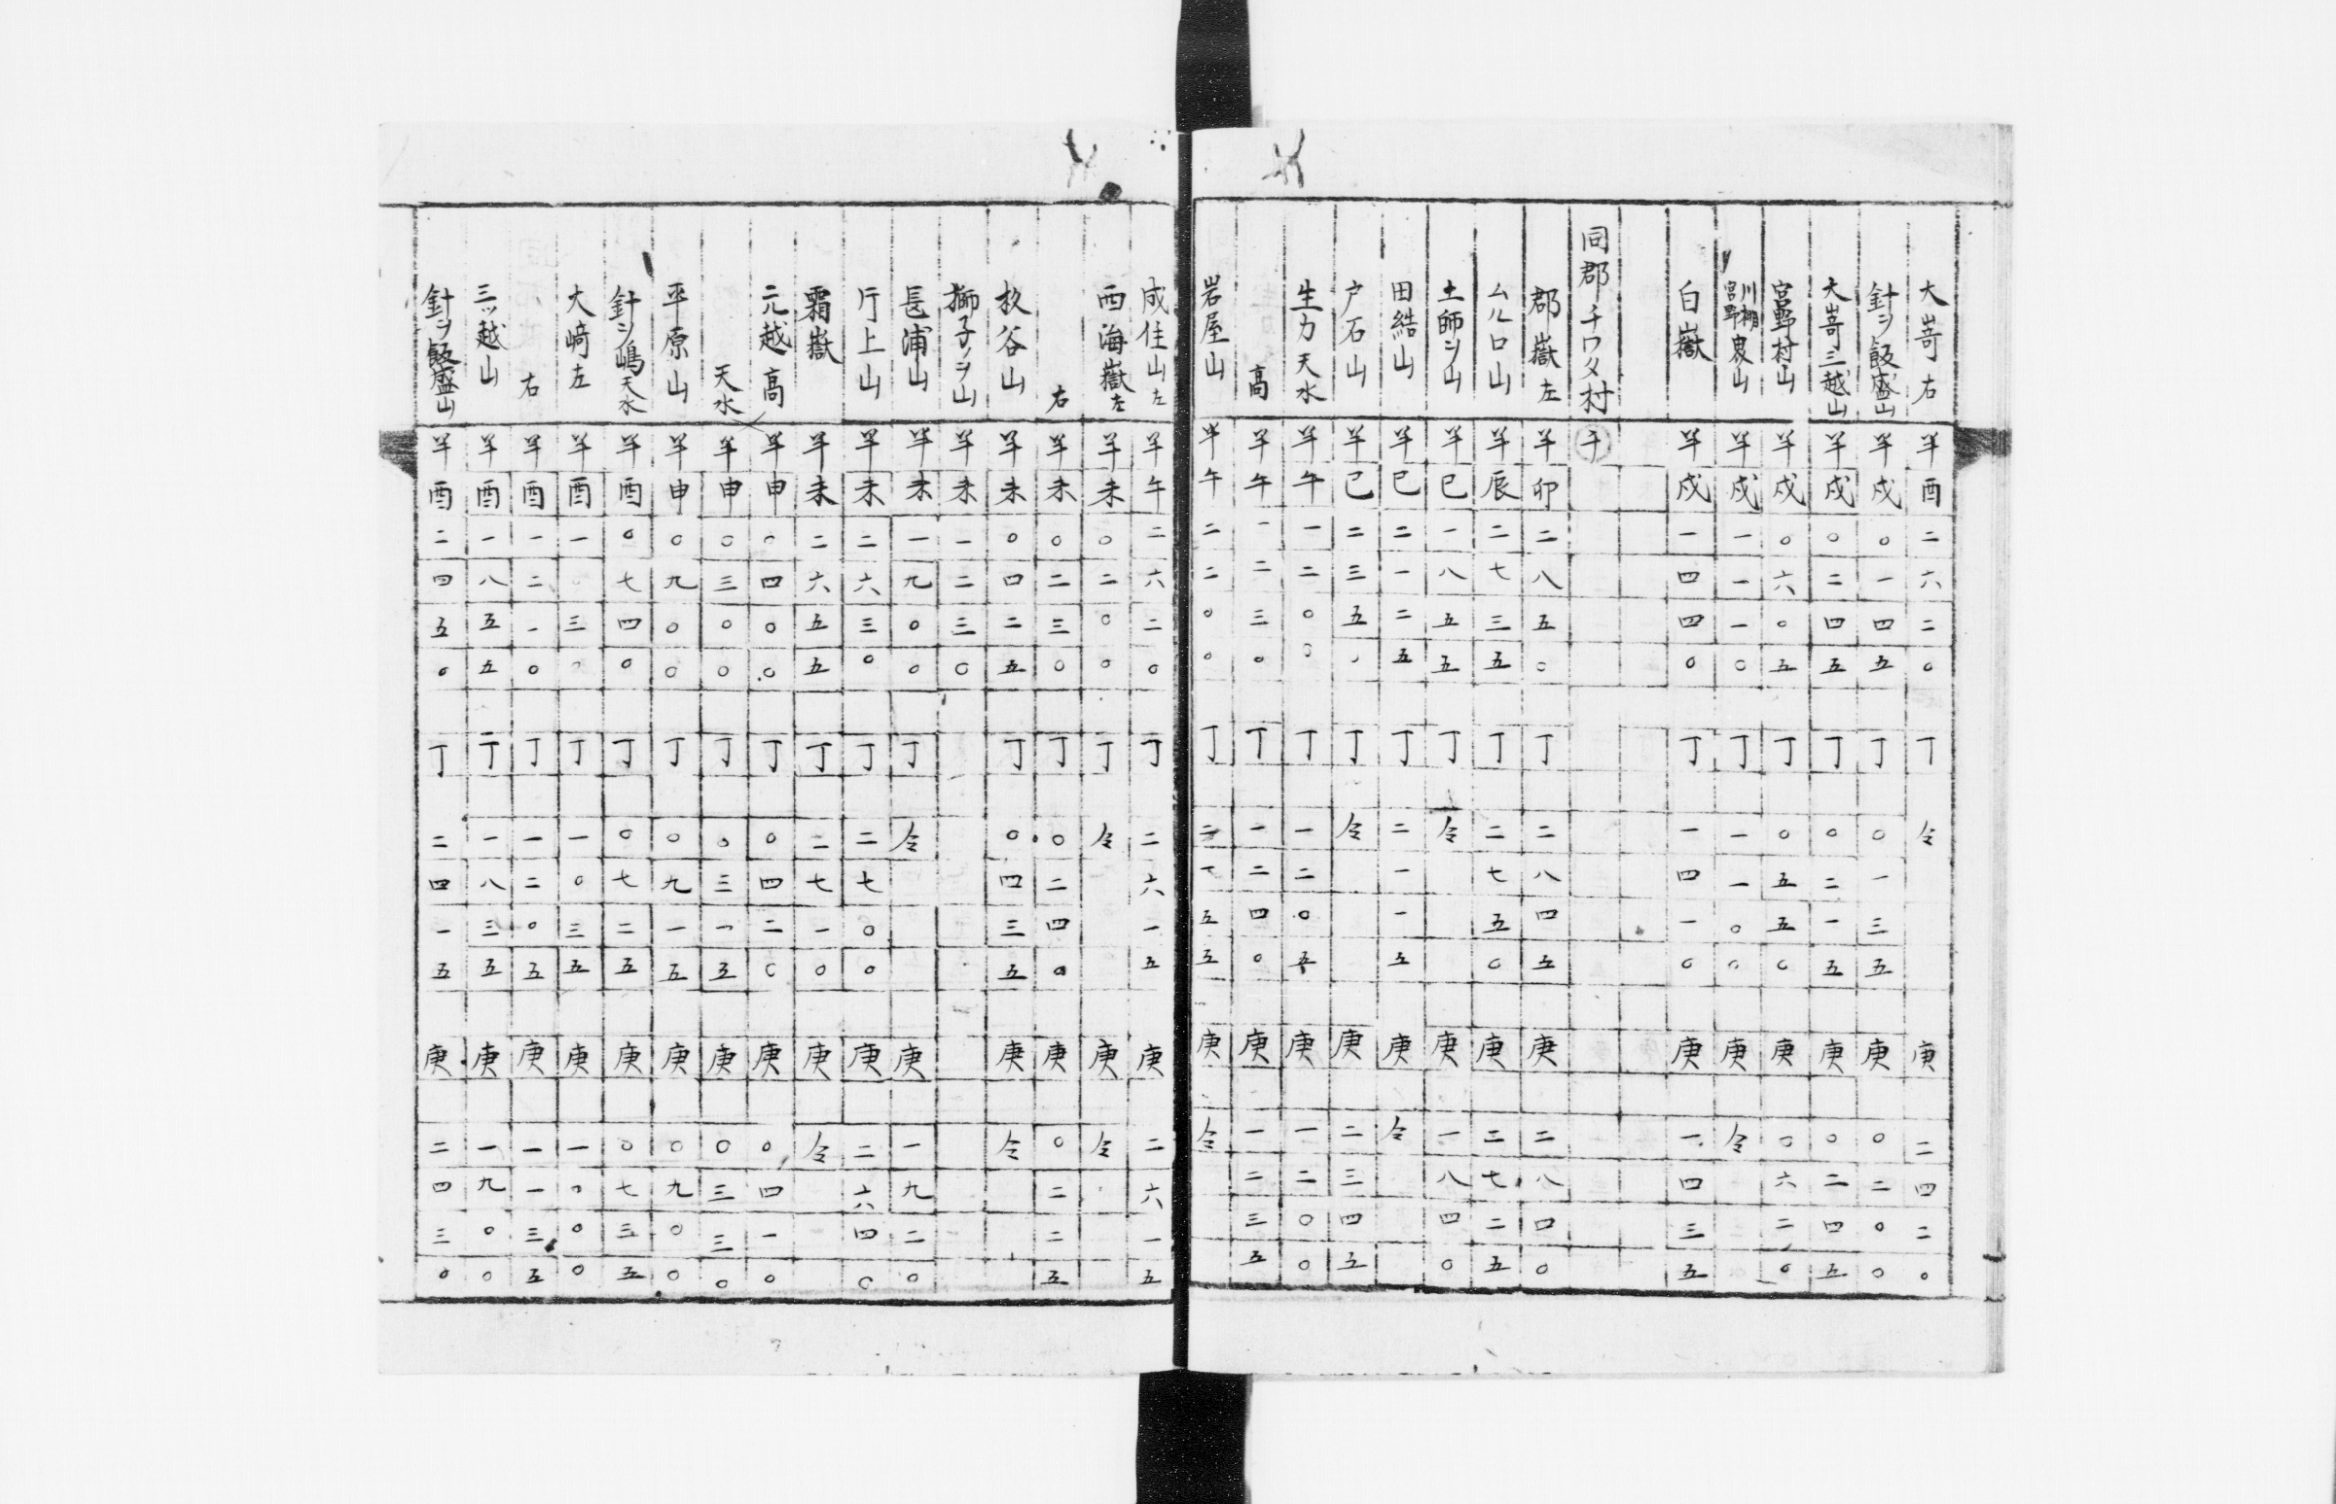 大嵜右 羊 酉 二 六 二 〇 丁 仒 庚 二 四 二 〇
針ヲ飯盛山 羊 戍 〇 一 四 五 丁 〇 一 三 五 庚 〇 二 〇 〇
大嵜三越山 羊 戍 〇 二 四 五 丁 〇 二 一 五 庚 〇 二 四 五
宮野村山 羊 戍 〇 六 〇 五 丁 〇 五 五 〇 庚 〇 六 二 〇
川棚宮野 山 羊 戍 一 一 一 〇 丁 一 一 〇 〇 庚 仒
白嶽 羊 戍 一 四 四 〇 丁 一 四 一 〇 庚 一 四 三 五
同郡千ワタ村 千
郡嶽左 羊 卯 二 八 五 〇 丁 二 八 四 五 庚 二 八 四 〇
ムルロ山 羊 辰 二 七 三 五 丁 二 七 五 〇 庚 二 七 二 五
土師ヲ山 羊 巳 一 八 五 五 丁 仒 庚 一 八 四 〇
田結山 羊 巳 二 一 二 五 丁 二 一 一 五 庚 仒
戸石山 羊 巳 二 三 五 〇 丁 仒 庚 二 三 四 五
生力天水 羊 午 一 二 〇 〇 丁 一 二 〇 五 庚 一 二 〇 〇
高 羊 午 一 二 三 〇 丁 一 二 四 〇 庚 一 二 三 五
岩屋山 羊 午 二 二 〇 〇 丁 二 一 五 五 庚 仒
成住山左 羊 午 二 六 二 〇 丁 二 六 一 五 庚 二 六 一 五
西海嶽左 羊 未 〇 二 〇 〇 丁 仒 庚 仒
右 羊 未 〇 二 三 〇 丁 〇 二 四 〇 庚 〇 二 二 五
谷山 羊 未 〇 四 二 五 丁 〇 四 三 五 庚 仒
獅子ノヲ山 羊 未 一 二 三 〇
長浦山 羊 未 一 九 〇 〇 丁 仒 庚 一 九 二 〇
片上山 羊 未 二 六 三 〇 丁 二 七 〇 〇 庚 二 六 四 〇
霜嶽 羊 未 二 六 五 五 丁 二 七 一 〇 庚 仒
元越高 羊 申 〇 四 〇 〇 丁 〇 四 二 〇 庚 〇 四 一 〇
天水 羊 申 〇 三 〇 〇 丁 〇 三 一 五 庚 〇 三 三 〇
平原山 羊 申 〇 九 〇 〇 丁 〇 九 一 五 庚 〇 九 〇 〇
針ヲ嶋天水 羊 酉 〇 七 四 〇 丁 〇 七 二 五 庚 〇 七 三 五
大﨑左 羊 酉 一 〇 三 〇 丁 一 〇 三 五 庚 一 〇 〇 〇
右 羊 酉 一 二 一 〇 丁 一 二 〇 五 庚 一 一 三 五
三ッ越山 羊 酉 一 八 五 五 丁 一 八 三 五 庚 一 九 〇 〇
針ヲ飯盛山 羊 酉 二 四 五 〇 丁 二 四 一 五 庚 二 四 三 〇